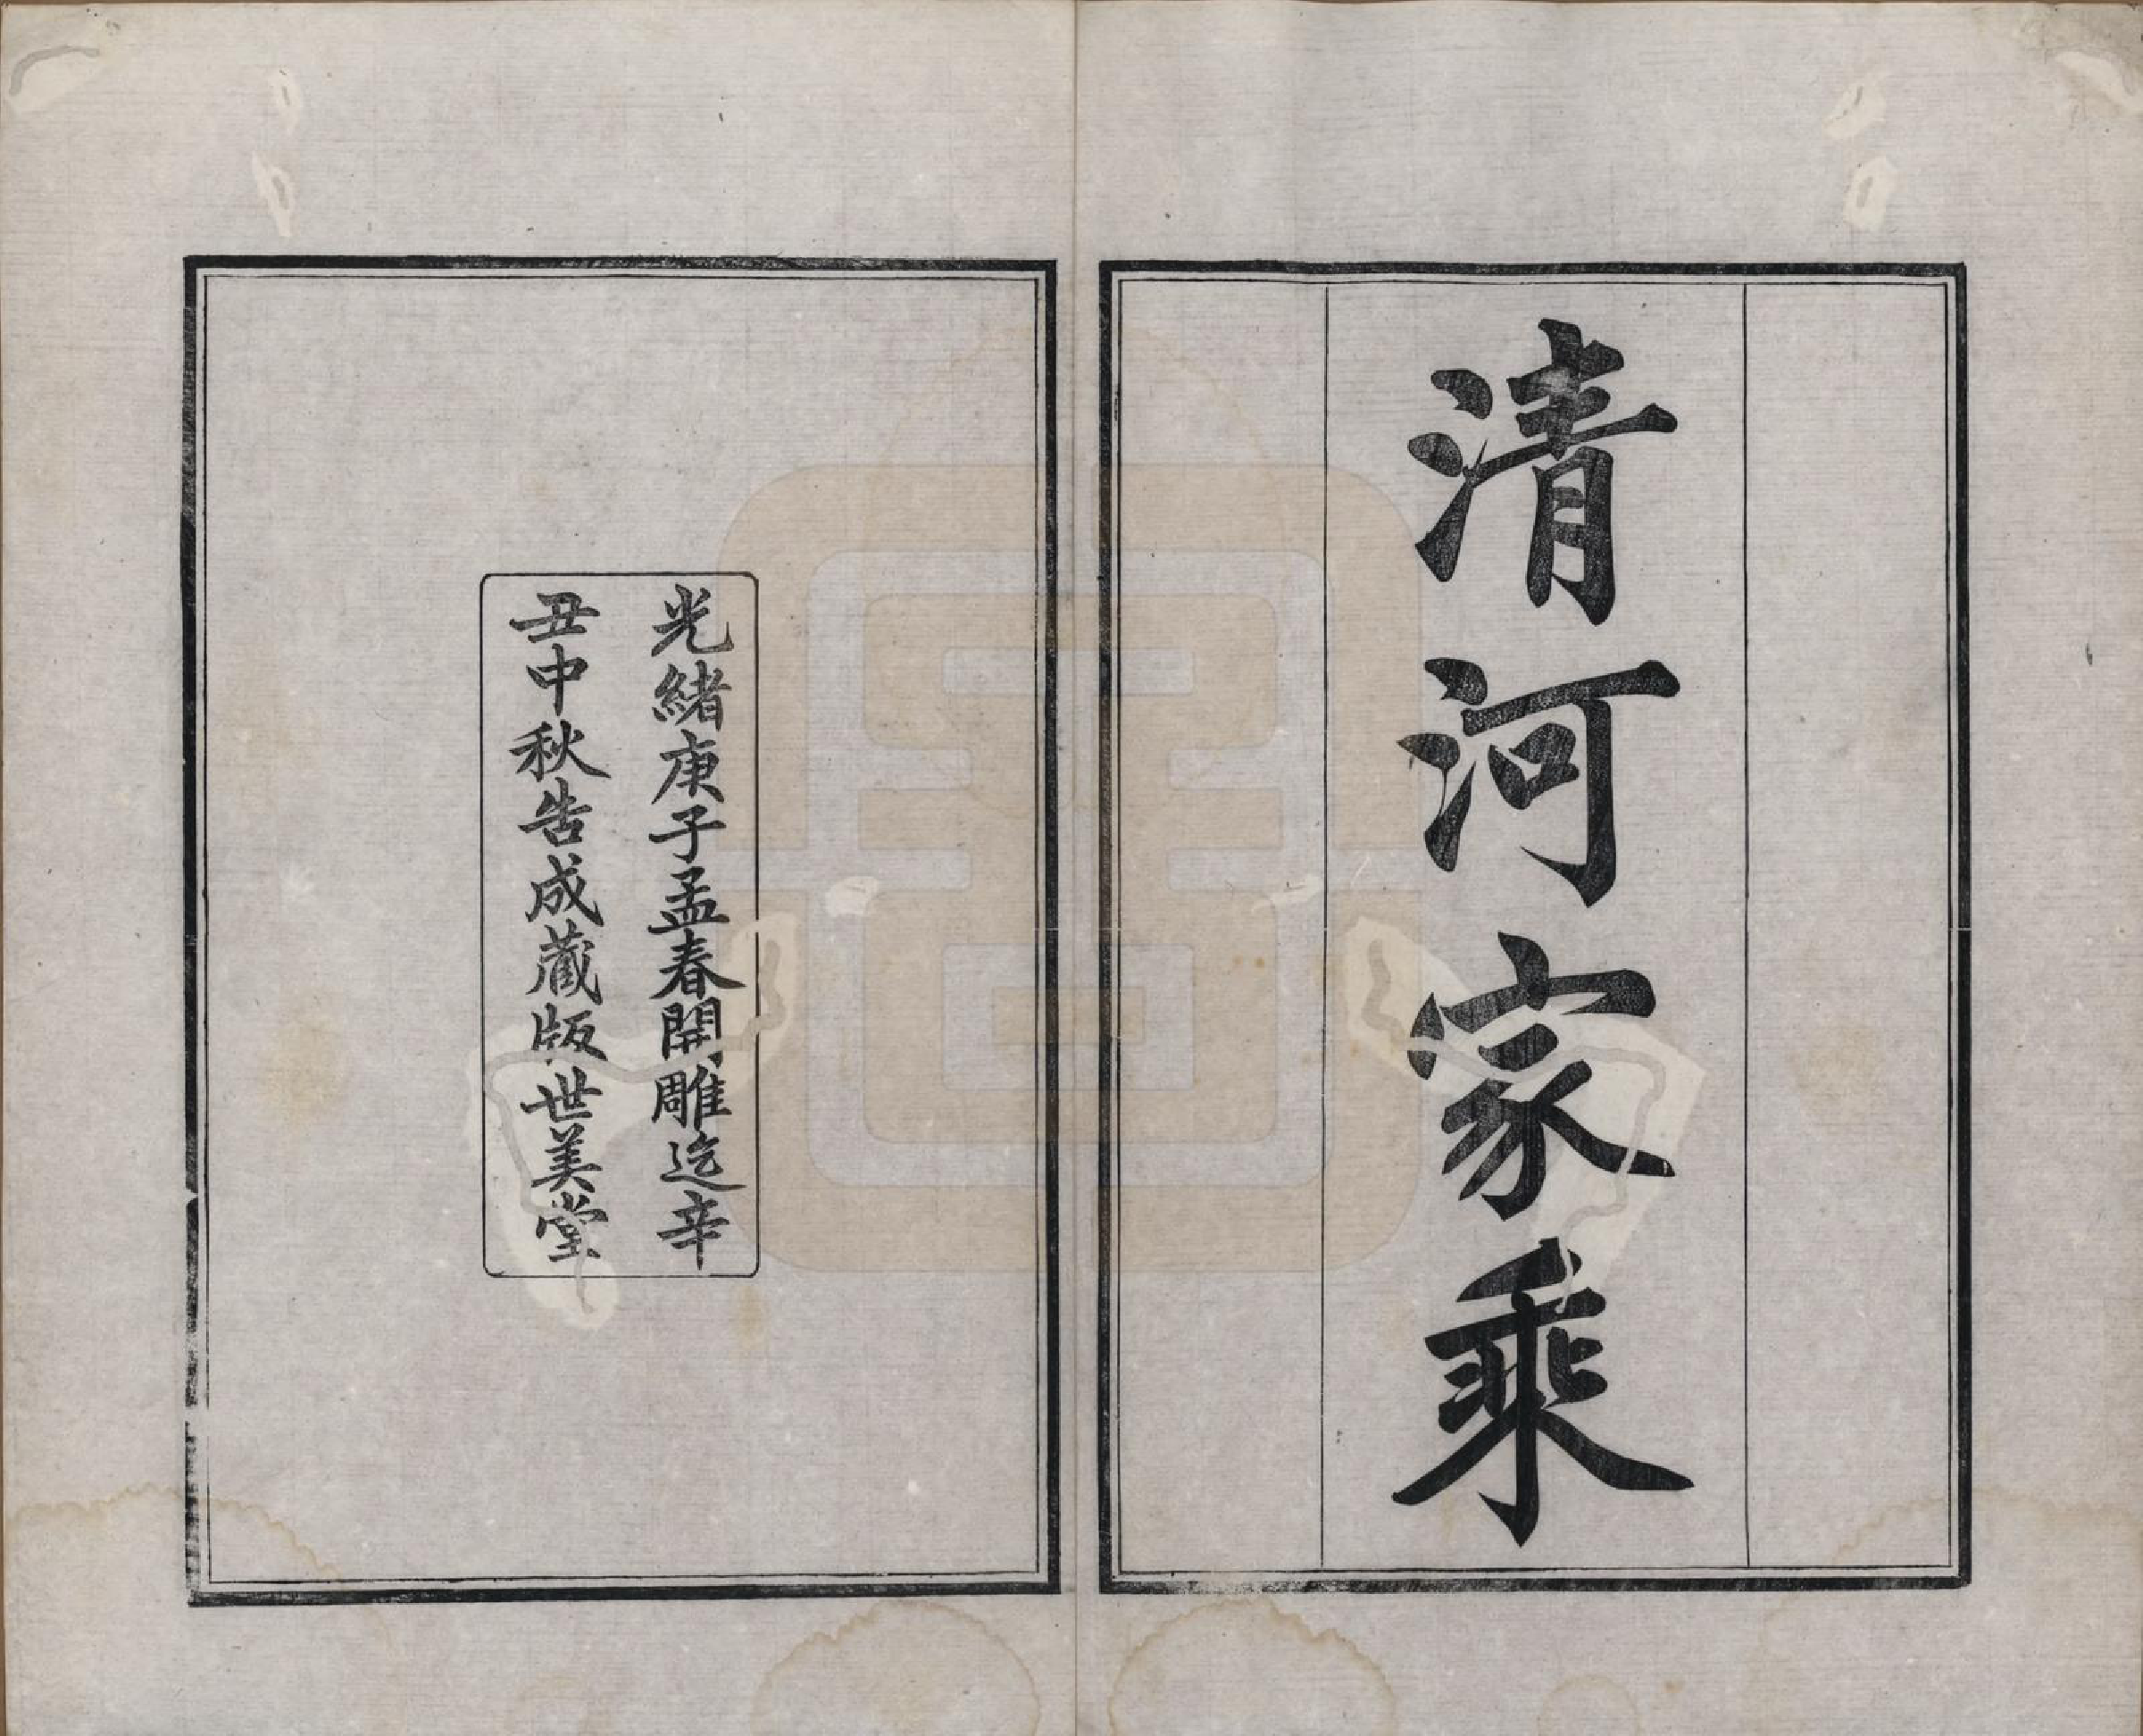 清河家乘
光緒庚子孟春開雕迄辛
丑中秋告成藏版世美堂